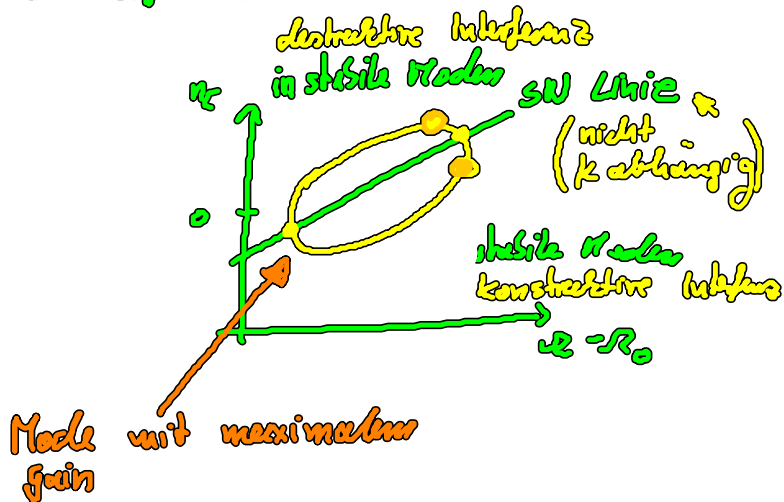 destruktive Interferenz
instabile Moden
n_c
SN Linie
(nicht
K abhängig)
0
stabile Moden
konstruktive Interferenz
Ω - Ω_0
Mode mit maximalem
gain